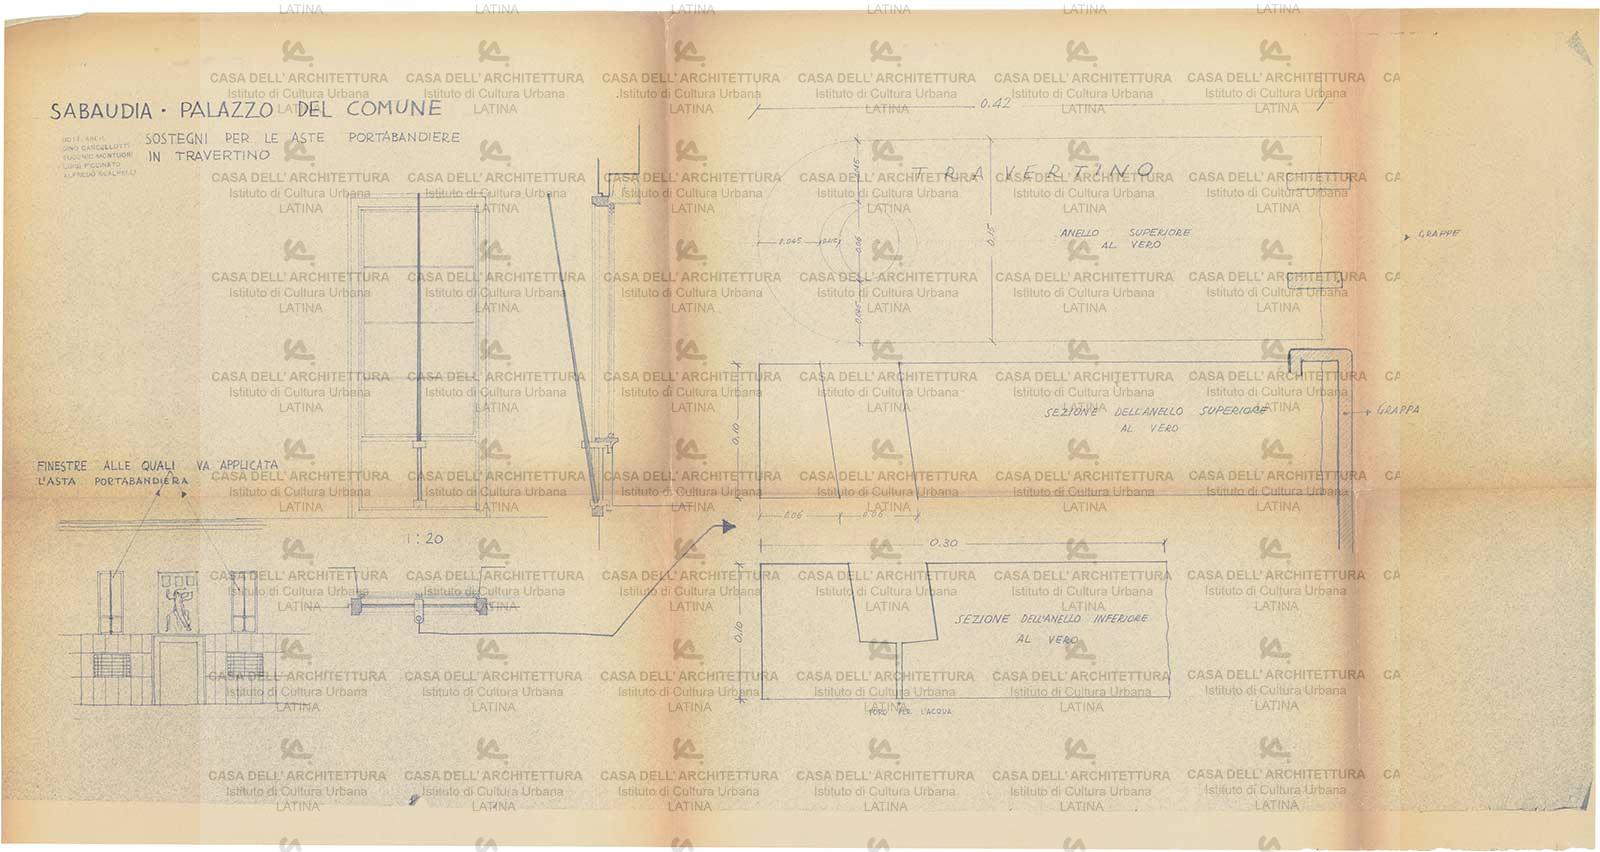 SABAUDIA · PALAZZO DEL COMUNE
SOSTEGNI PER LE ASTE PORTABANDIERE
IN TRAVERTINO
DOTT. ARCH.
GINO CANCELLOTTI
EUGENIO MONTUORI
LUIGI PICCINATO
ALFREDO SCALPELLI
0.42
TRAVERTINO
0.045
0.015
0.06
0.045
0.15
ANELLO SUPERIORE
AL VERO
GRAPPE
SEZIONE DELL'ANELLO SUPERIORE
AL VERO
GRAPPA
0.10
0.06
0.06
FINESTRE ALLE QUALI VA APPLICATA
L'ASTA PORTABANDIERA
1:20
0.30
0.10
SEZIONE DELL'ANELLO INFERIORE
AL VERO
FORO PER L'ACQUA
CASA DELL'ARCHITETTURA
Istituto di Cultura Urbana
LATINA